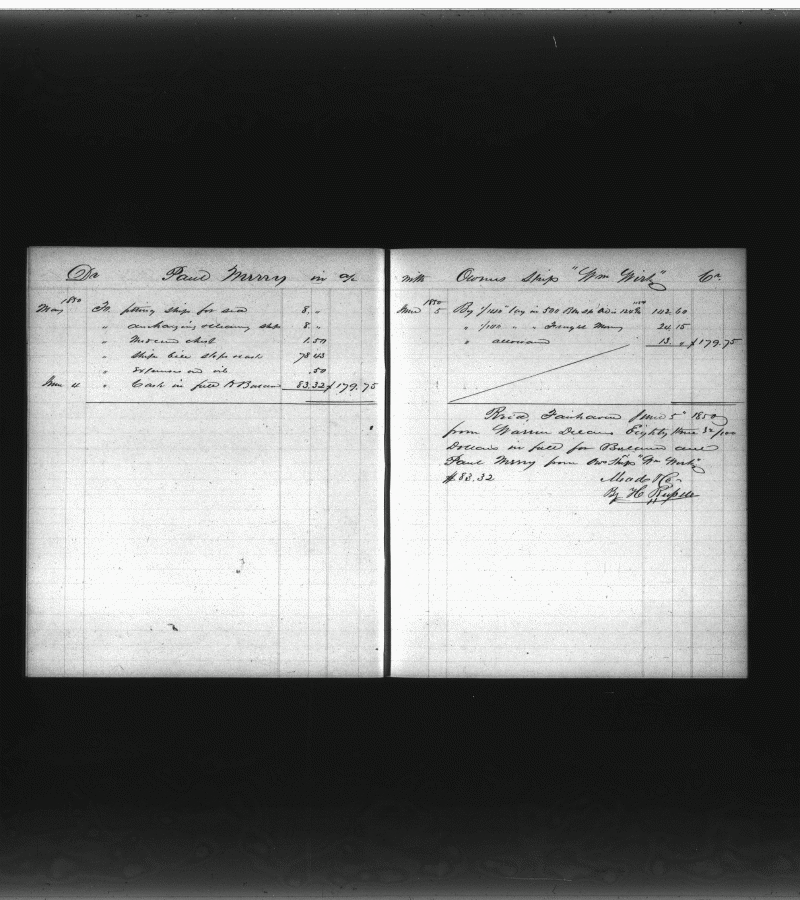 Dr Paul Merry in a/c
1850
May To fitting ship for sea 8. "
" discharging & cleaning ship 8 "
" Medicine chest 1.50
" Ships bill slops & cash 78 43
" Extension on oil .50
June 4 " Cash in full to Balance 83.32 $179.75
with Owners Ship "Wm Wirt" Cr.
1850
June 5 By 1/140 lay in 142.60
" 1/100 " " Freight Money 24.15
" allowance 13. " $179.75
Recd. Fairhaven June 5" 1850
from Warren Delano Eighty three 32/100
Dollars in full for Balance
Paul Merry from Ship "Wm Wirt"
$83.32 Meade & Co.
By H